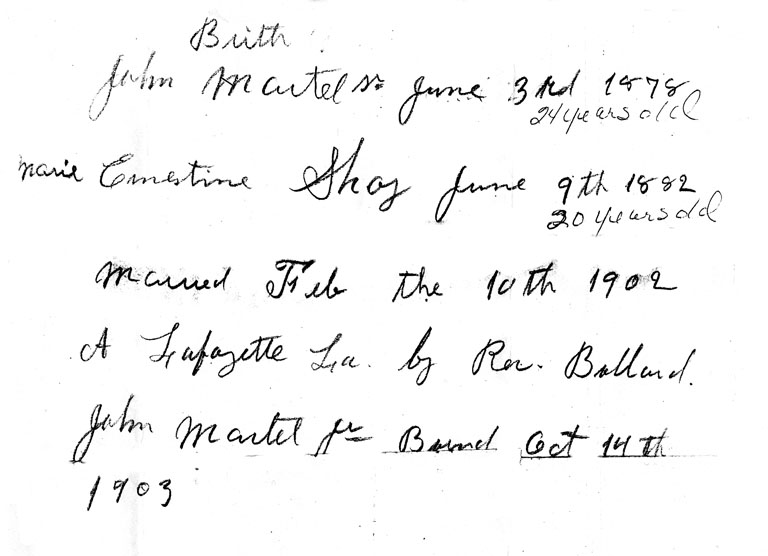 Birth
John Martel Sr June 3rd 1878
24 years old
Marie Ernestine Shoz June 9th 1882
20 years old
Married Feb the 10th 1902
A Lafayette La. by Rev. Bollard.
John Martel Jr Bornd Oct 14th
1903